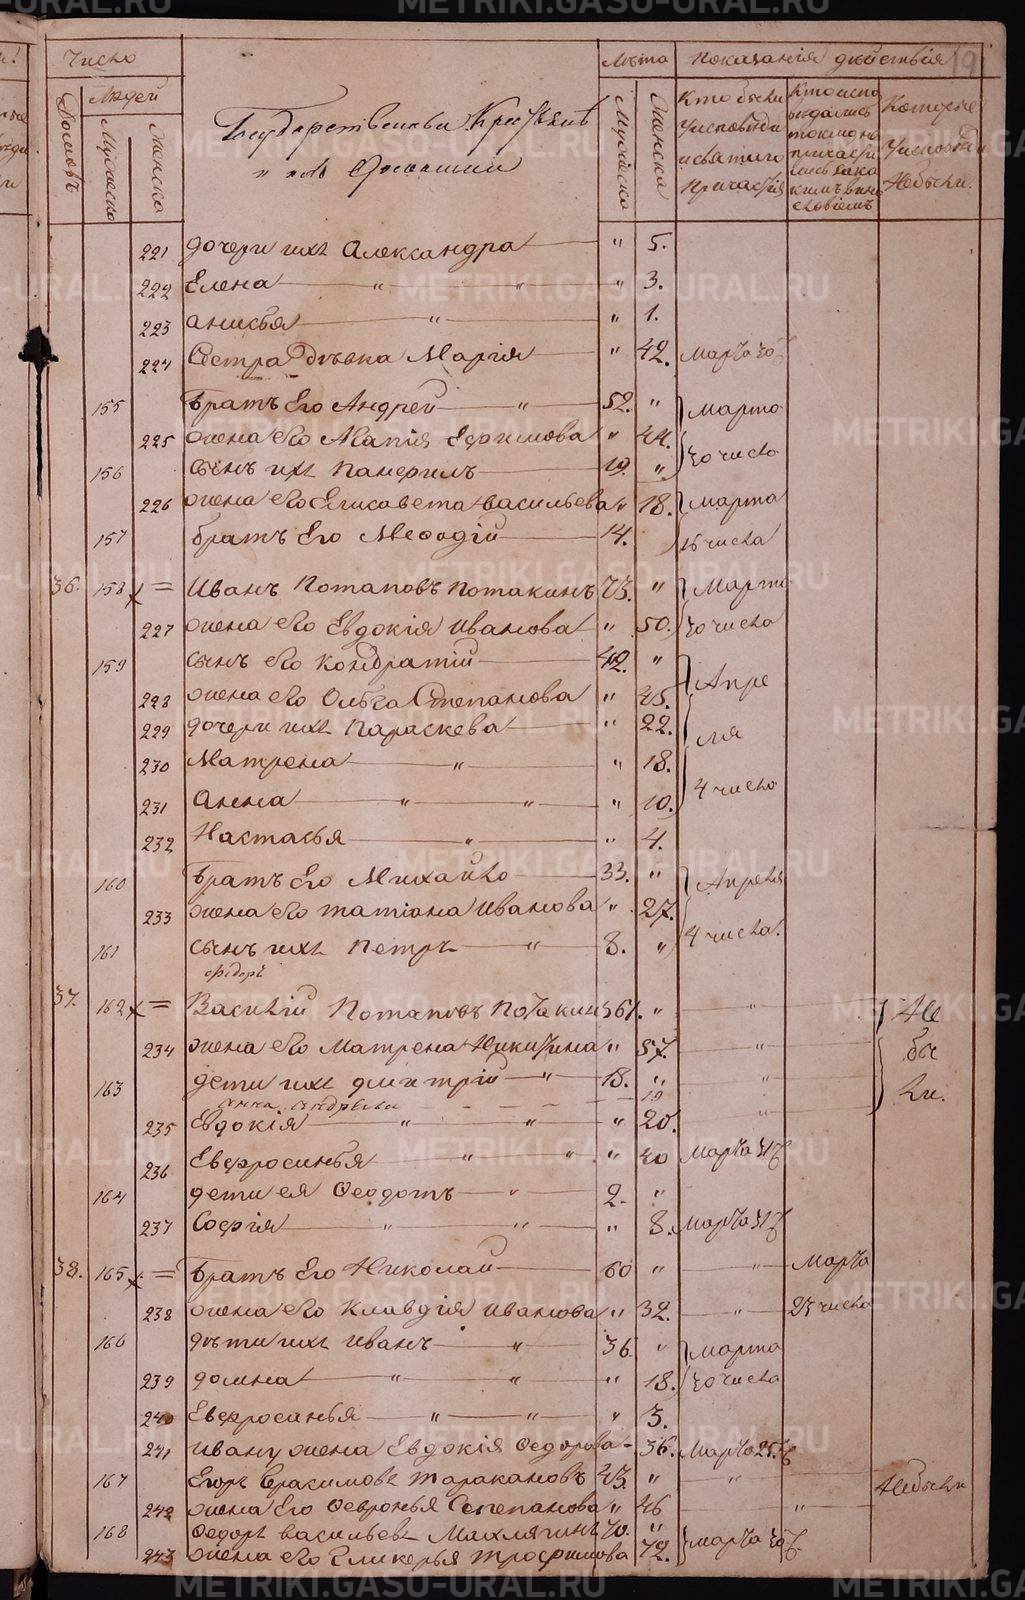 Число
Лѣта
Показанія дѣйствія
19
Домовъ
Людей
Мужеска
Женска
Государственны Крестьяне
и ихъ Домашніи
Мужеска
Женска
Кто были
у исповѣди
и святаго
Причастія
Кто испо
ведались
токмо не
причасти
лись и за ка
кимъ вино
словіемъ
Которые
у исповѣди
не были.
221 дочери ихъ Александра " 5.
222 Елена " " " 3.
223 Анисья " " 1.
224 Сестра дѣвка Марія " 42. Марта 30
155 Братъ Его Андрей " 52. " Марта
225 жена его Марія Ефимова " 44. 30 числа
156 сынъ ихъ Памфилъ 19. "
226 жена его Елисавета Васильева " 18. Марта
157 братъ Его Меѳодій 14. 15 числа
36. 158 х = Иванъ Потаповъ Потакинъ 73. " Марта
227 жена его Евдокія Иванова " 50. 30 числа
159 сынъ его Кондратій 42. "
228 жена его Ольга Степанова " 45. Апре
229 дочери ихъ Параскева " 22. ля
230 Матрена " " 18.
231 Анна " " " 10. 4 числа
232 Настасья " " 4.
160 Братъ Его Михайло 33. " Апреля
233 жена его Татіана Иванова " 27.
161 сынъ ихъ Петръ " 8. " 4 числа.
Ѳедоръ
37. 162 х = Василій Потаповъ Потакинъ 61. " " Не
234 жена его Матрена Никитина " 57. " бы
163 дети ихъ Дмитрій " 18. " " ли.
Анна Андреева 19
235 Евдокія " " " 20. "
236 Евфросинья " " " 30 Марта 31
164 дети ея Ѳеодотъ " 2. "
237 Софія " " " 8. Марта 31
38. 165 х = Братъ Его Николай 60 " " Марта
238 жена его Клавдія Иванова " 32. " 25 числа
166 дѣти ихъ Иванъ " 36. " Марта
239 Домна " " " 18. 30 числа
240 Евфросинья " " " 3.
241 Ивану жена Евдокія Ѳедорова - 36. Марта 25
167 Егоръ Герасимовъ Таракановъ 43. " " Не были
242 жена Его Ѳевронья Степанова " 46 "
168 Ѳедоръ Васильевъ Махлягинъ 70. "
243 жена его Гликерья Трофимова 72. Марта 30
METRIKI.GASO-URAL.RU